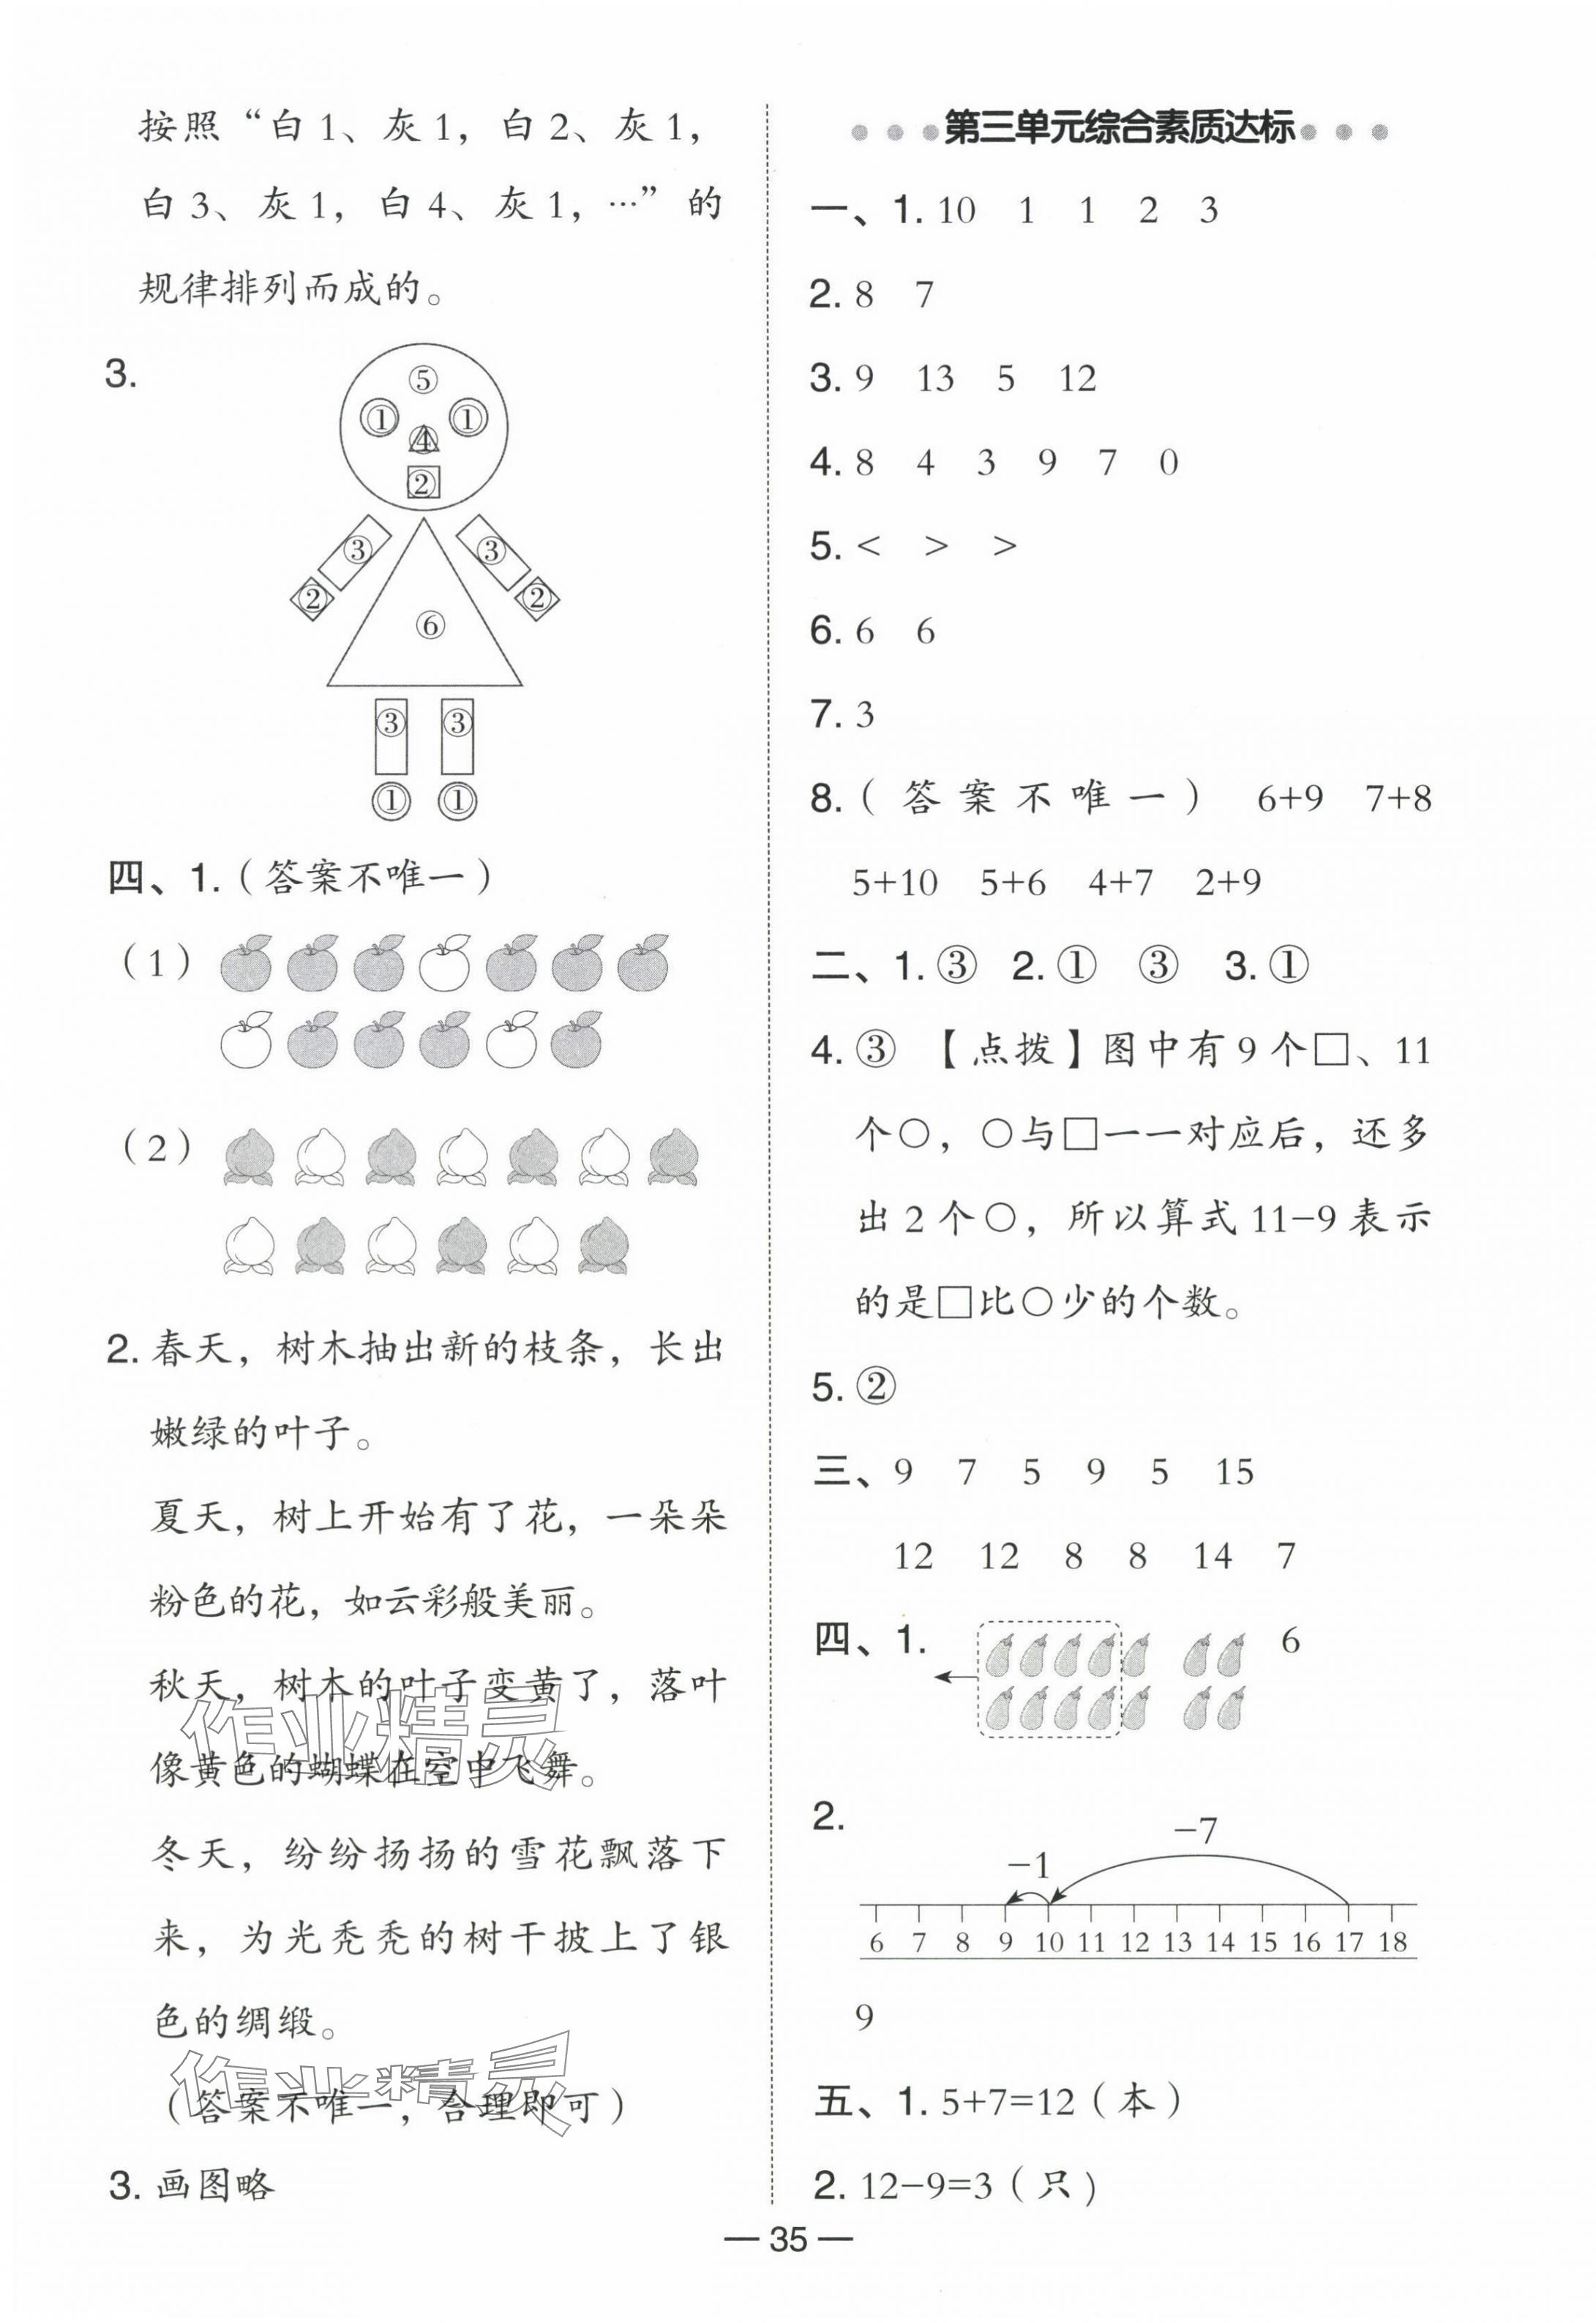 按照“白1、灰1，白2、灰1，
白3、灰1，白4、灰1，…”的
规律排列而成的。
3.
⑤
① ①
④
②
③ ③
② ②
⑥
③ ③
① ①
四、1.（答案不唯一）
（1）
（2）
2. 春天，树木抽出新的枝条，长出
嫩绿的叶子。
夏天，树上开始有了花，一朵朵
粉色的花，如云彩般美丽。
秋天，树木的叶子变黄了，落叶
像黄色的蝴蝶在空中飞舞。
冬天，纷纷扬扬的雪花飘落下
来，为光秃秃的树干披上了银
色的绸缎。
（答案不唯一，合理即可）
3. 画图略
作业精灵
作业精灵
第三单元综合素质达标
一、1. 10 1 1 2 3
2. 8 7
3. 9 13 5 12
4. 8 4 3 9 7 0
5. < > >
6. 6 6
7. 3
8.（答案不唯一） 6+9 7+8
5+10 5+6 4+7 2+9
二、1. ③ 2. ① ③ 3. ①
4. ③ 【点拨】图中有9个□、11
个○，○与□一一对应后，还多
出2个○，所以算式11−9表示
的是□比○少的个数。
5. ②
三、9 7 5 9 5 15
12 12 8 8 14 7
四、1. 6
2.
−7
−1
6 7 8 9 10 11 12 13 14 15 16 17 18
9
五、1. 5+7=12（本）
2. 12−9=3（只）
— 35 —